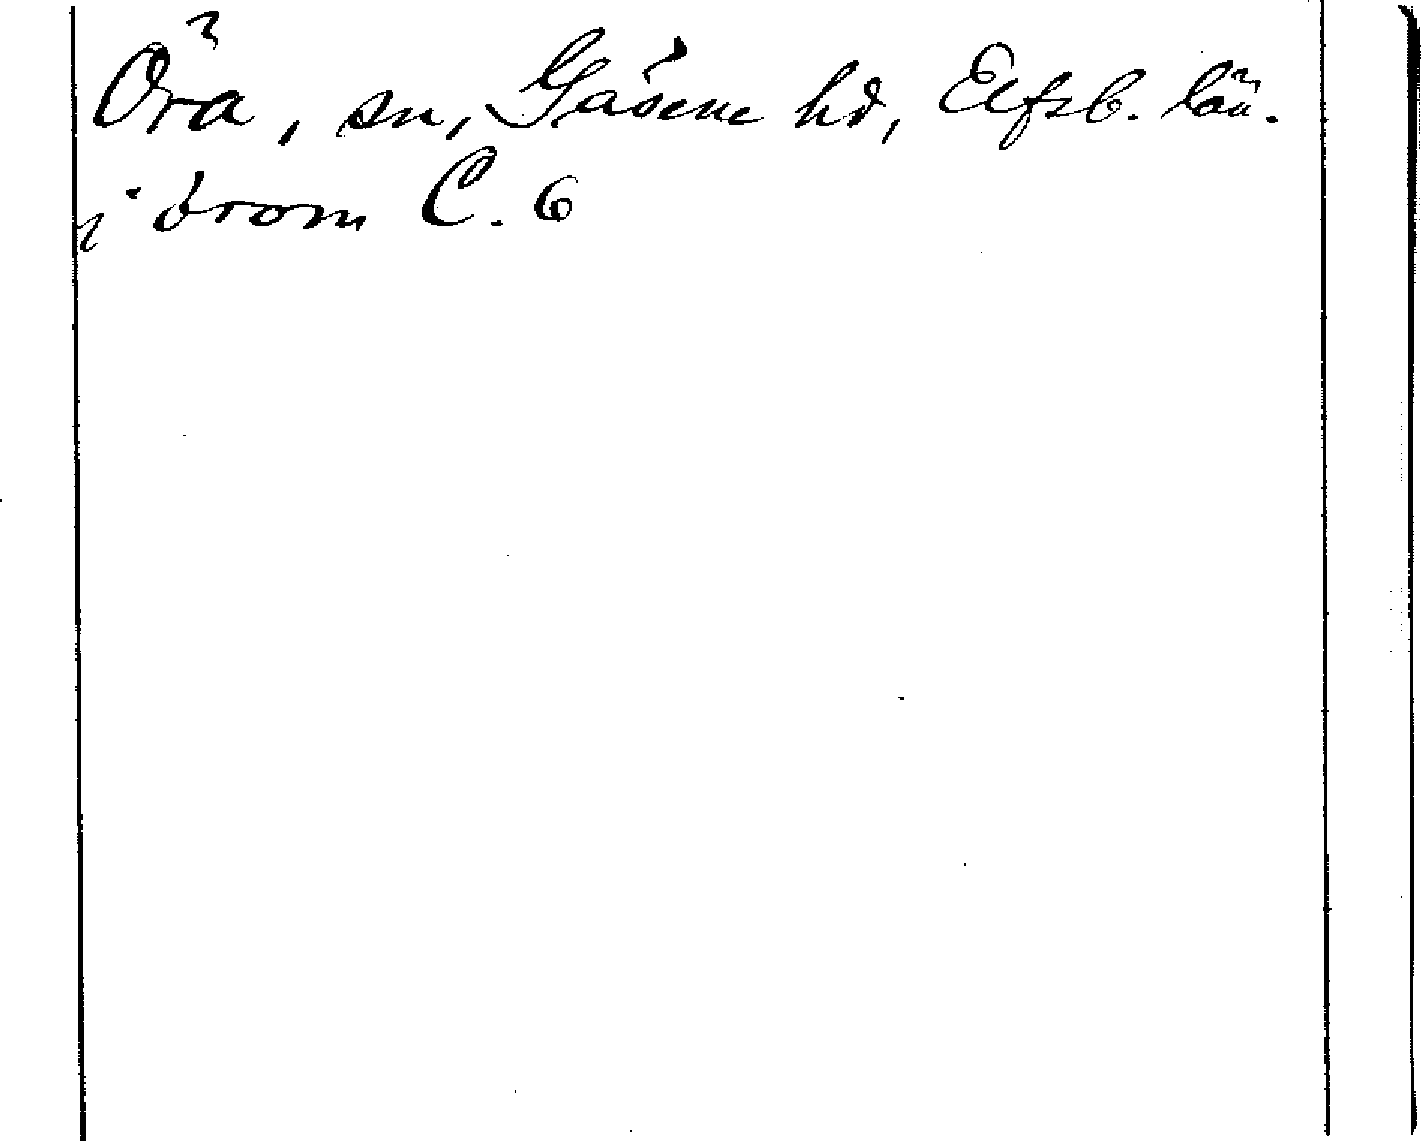 Öra, sn, Gäsene hd, Elfsb. län.
j örom C. 6